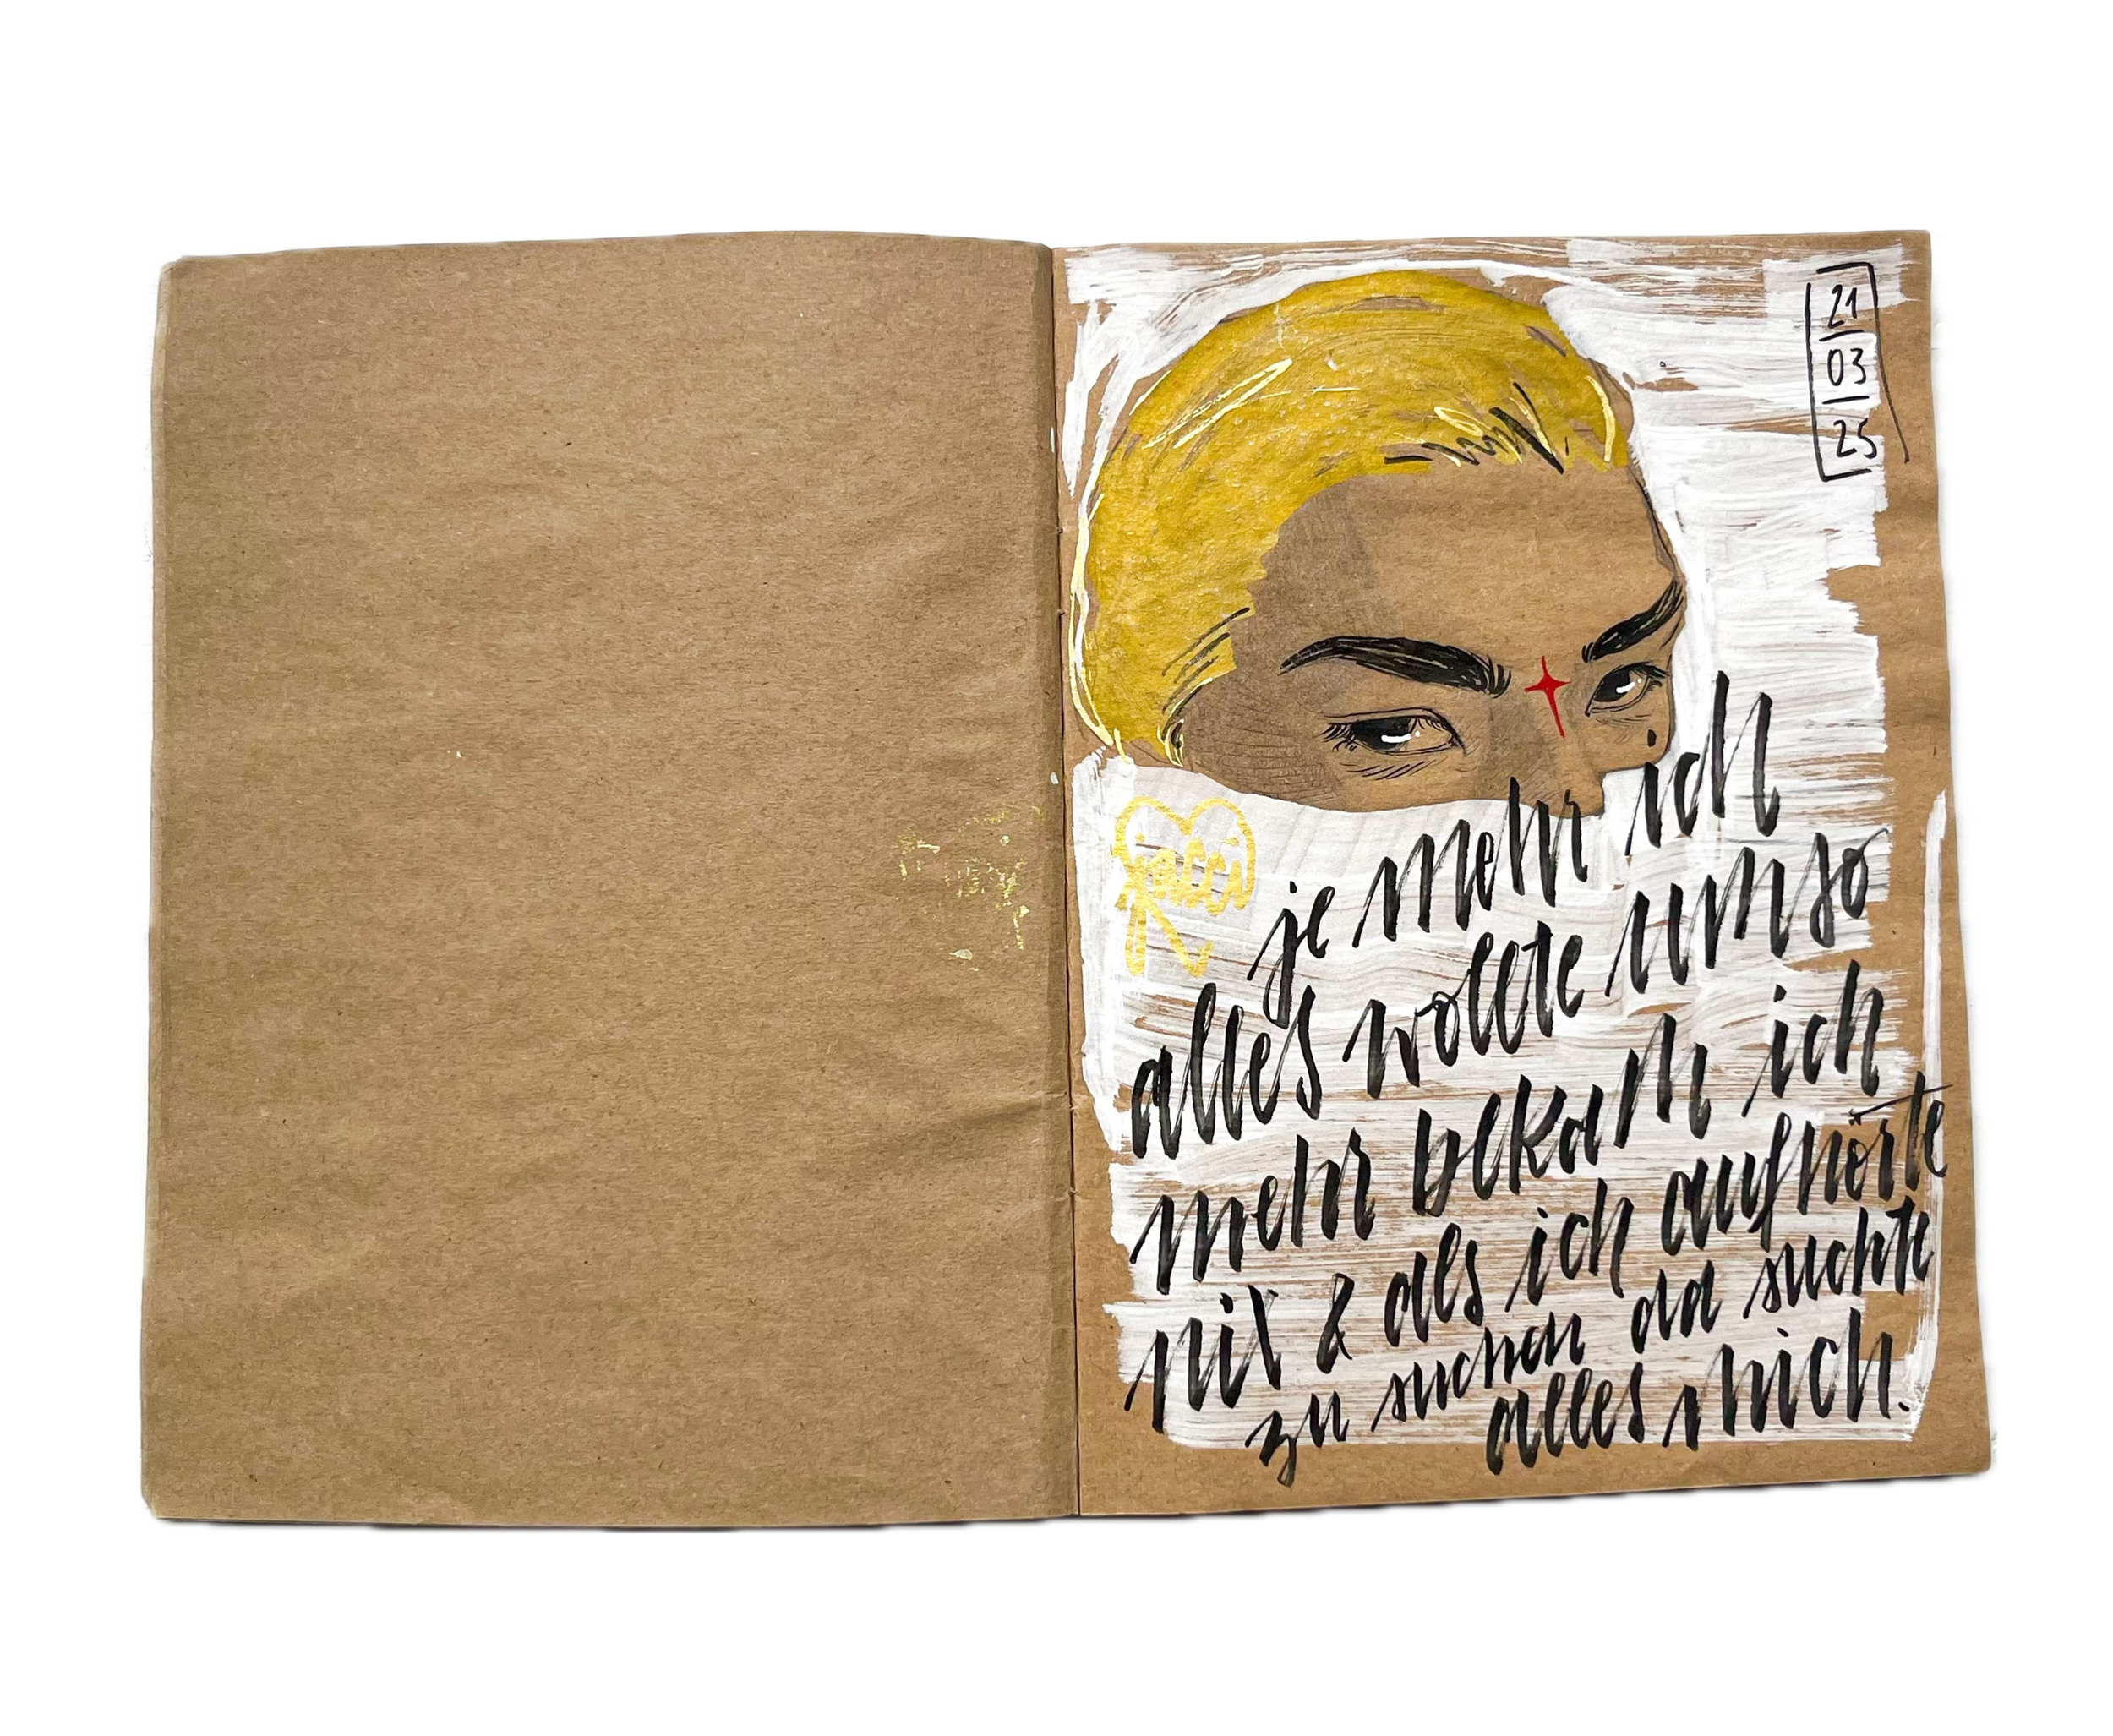 21
03
25
jacci
je mehr ich
alles wollte umso
mehr bekam ich
nix & als ich aufhörte
zu suchen da suchte
alles mich.